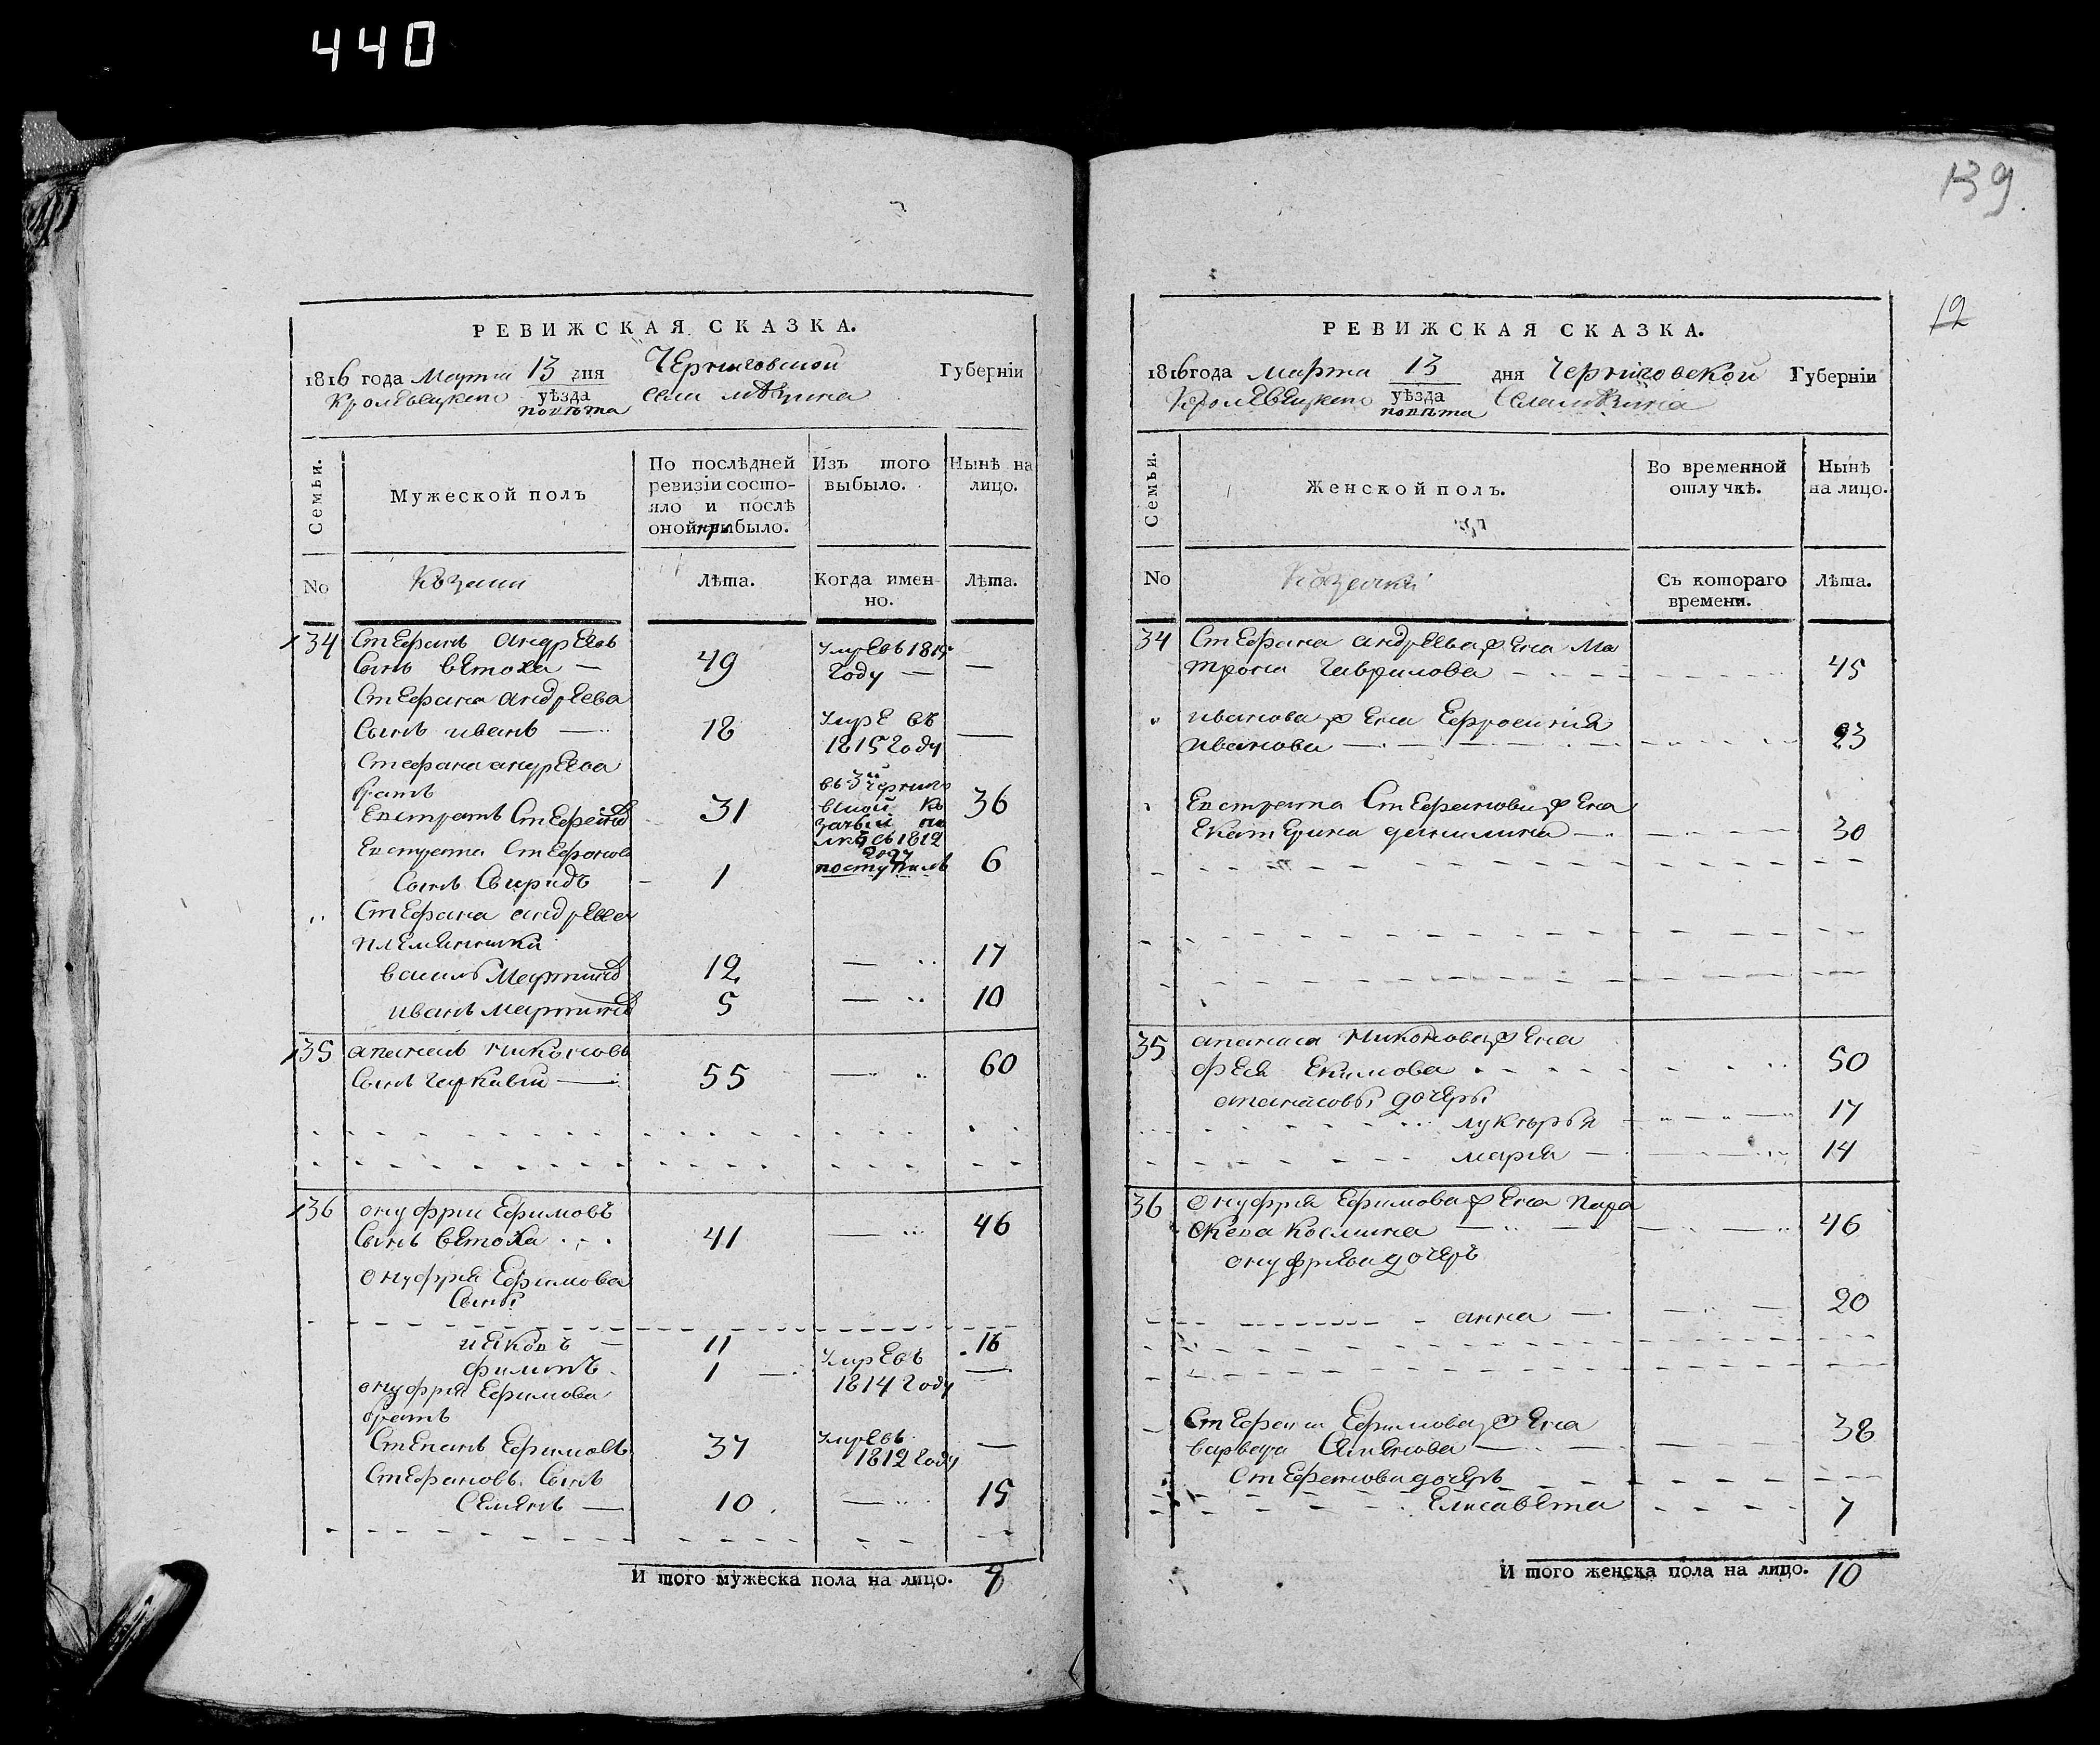 440
РЕВИЖСКАЯ СКАЗКА.
1816 года Марта 13 дня Черниговской Губерніи
Кролевецкого уѣзда повѣта Села
Семьи.
Мужеской полъ
По послѣдней ревизіи состо-
яло и послѣ
оной прибыло.
Изъ того
выбыло.
Нынѣ на
лицо.
No
Козаки
Лѣта.
Когда имен-
но.
Лѣта.
34 Стефанъ Андреевъ
Сынъ Ветоха — 49 умре въ 181 году — —
Стефана Андреева
Сынъ иванъ — 18 умре въ 1815 году —
Стефана андреева
братъ
Евстратъ 31 36
въ 3й Чернигов
ской ко
зачий по
въ 1812
году
поступилъ
Евстрата Стефанова
Сынъ Свиридъ - 1 6
Стефана андреева
племянники
василь Мартинов 12 — 17
иванъ Мартинов 5 — 10
35 апанасъ никоновъ
Сынъ — 55 — 60
36 онуфрий Ефимовъ
Сынъ ветоха 41 — 46
онуфрия Ефимова
Сыны
иаковъ — 11 16
филипъ 1 — умре въ 1814 году —
онуфрия Ефимова
братъ
Степанъ Ефимовъ 37 умре въ 1812 году —
Стефановъ Сынъ
Семенъ — 10 — 15
И того мужеска пола на лицо. 9
139
12
РЕВИЖСКАЯ СКАЗКА.
1816 года марта 13 дня Черниговской Губерніи
Кролевецкого уѣзда повѣта Села
Семьи.
Женской полъ.
Во временной
отлучкѣ.
Нынѣ
на лицо.
No
Козачки
Съ котораго
времени.
Лѣта.
34 Стефана андреева жена Ма
трона Гаврилова 45
иванова жена Ефросиния
иванова 23
Евстрата Стефанова жена
Екатерина данилина 30
35 апанаса никонова жена
Екимова 50
апанасовы дочеры
лукерья 17
мария 14
36 Онуфрия Ефимова жена пара
скева космина 46
онуфриева дочеръ
анна 20
Стефана Ефимова жена
варвара 38
Стефанова дочеръ
Елисавета 7
И того женска пола на лицо. 10